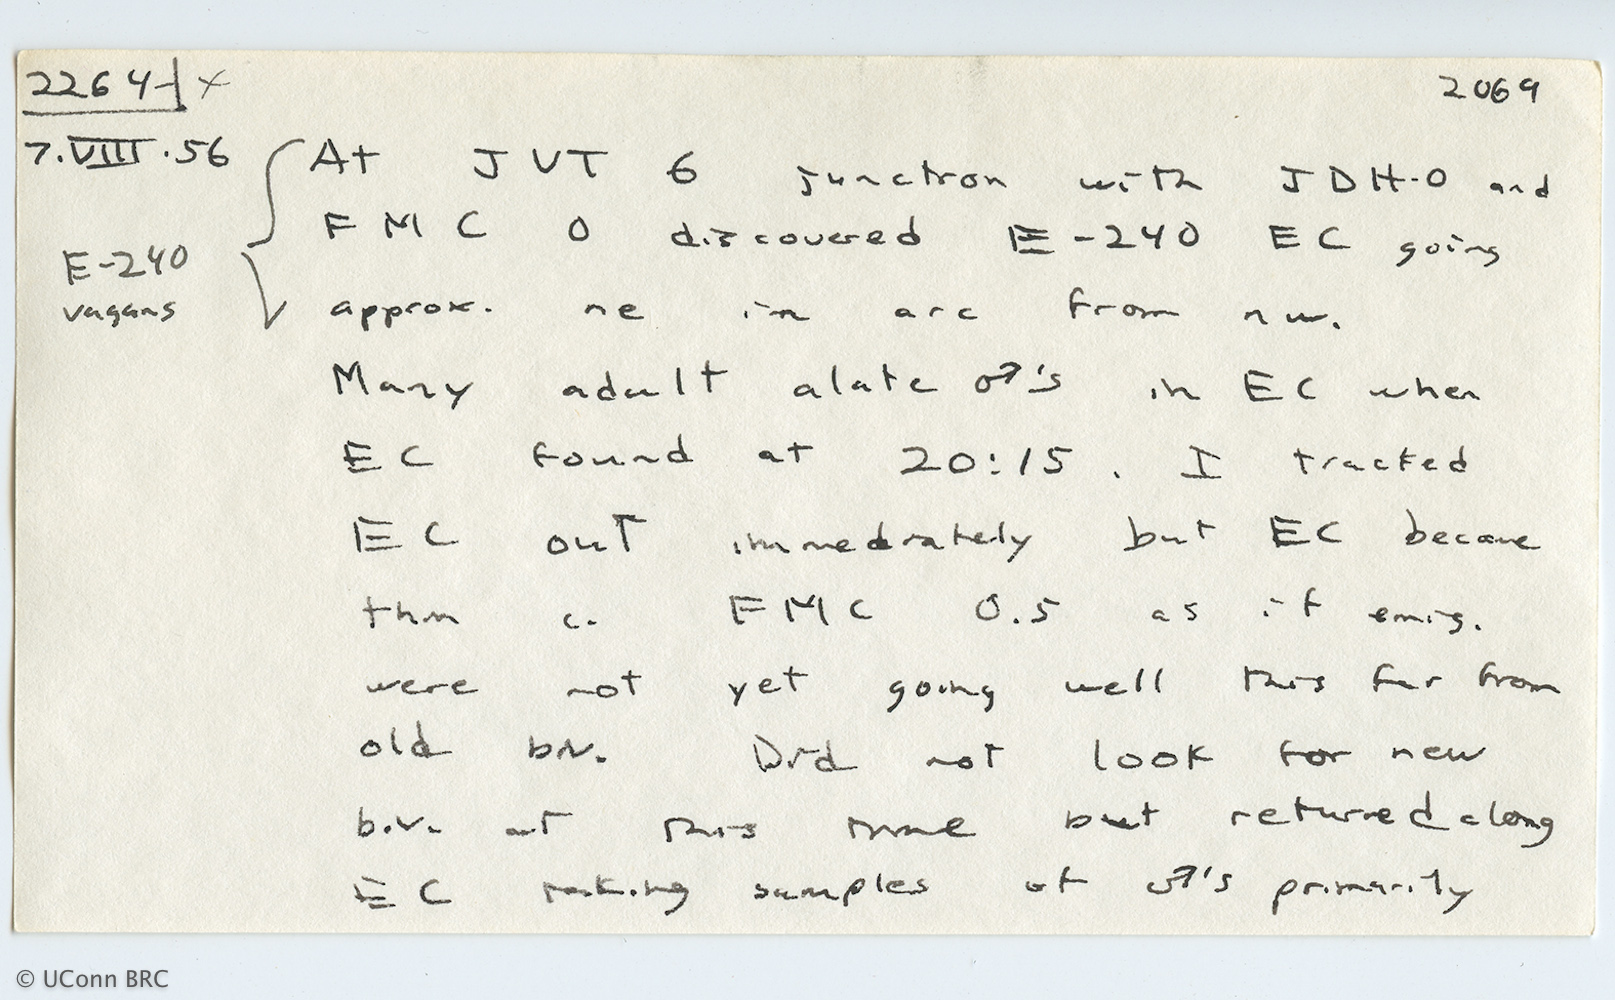 2264-1 x 2069
7.VIII.56 At JVT 6 junction with JDH-0 and
FMC 0 discovered E-240 EC going
E-240
vagans approx. ne in arc from nw.
Many adult alate ♂'s in EC when
EC found at 20:15. I tracked
EC out immediately but EC became
thin c. FMC 0.5 as if emig.
were not yet going well this far from
old biv. Did not look for new
biv. at this time but returned along
EC making samples of ♂'s primarily
© UConn BRC